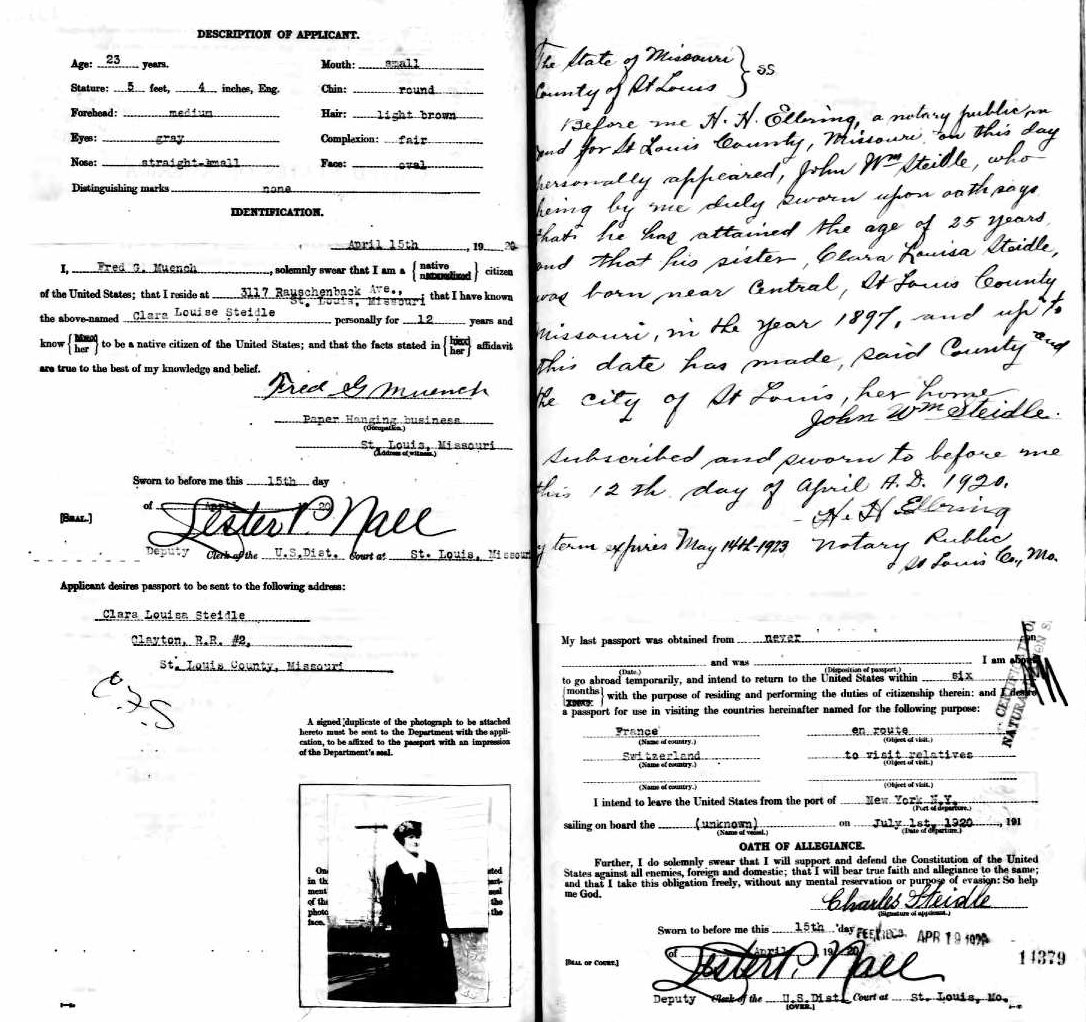 DESCRIPTION OF APPLICANT.
Age: 23 years.
Mouth: small
Stature: 5 feet, 4 inches, Eng.
Chin: round
Forehead: medium
Hair: light brown
Eyes: gray
Complexion: fair
Nose: straight-small
Face: oval
Distinguishing marks none
IDENTIFICATION.
April 15th, 19 20
I, Fred G. Muench, solemnly swear that I am a {native naturalized} citizen
of the United States; that I reside at 3117 Rauschenback Ave.,
St. Louis, Missouri; that I have known
the above-named Clara Louise Steidle personally for 12 years and
know {him her} to be a native citizen of the United States; and that the facts stated in {his her} affidavit
are true to the best of my knowledge and belief.
Fred G Muench
Paper Hanging business
(Occupation.)
St. Louis, Missouri
(Address of witness.)
Sworn to before me this 15th day
of April 20
[SEAL.]
Lester P. Nall
Deputy Clerk of the U.S.Dist. Court at St. Louis, Missour
Applicant desires passport to be sent to the following address:
Clara Louisa Steidle
Clayton, R.R. #2,
St. Louis County, Missouri
A signed duplicate of the photograph to be attached
hereto must be sent to the Department with the appli-
cation, to be affixed to the passport with an impression
of the Department's seal.
The State of Missouri } ss
County of St Louis
Before me H. H. Ellbring, a notary public, in
and for St Louis County, Missouri on this day
personally appeared, John Wm Steidle, who
being by me duly sworn upon oath says
that he has attained the age of 25 years
and that his sister, Clara Louisa Steidle,
was born near Central, St Louis County
Missouri, in the year 1897, and up to
this date has made, said County and
the city of St Louis, her home
John Wm Steidle.
Subscribed and sworn to before me
this 12th day of April A.D. 1920.
H. H Ellbring
My term expires May 14th-1923 Notary Public
St Louis Co., Mo.
My last passport was obtained from never on
and was I am about
(Date.) (Disposition of passport.)
to go abroad temporarily, and intend to return to the United States within six
{months years} with the purpose of residing and performing the duties of citizenship therein: and I desire
a passport for use in visiting the countries hereinafter named for the following purpose:
France en route
(Name of country.) (Object of visit.)
Switzerland to visit relatives
(Name of country.) (Object of visit.)
(Name of country.) (Object of visit.)
I intend to leave the United States from the port of New York N.Y.
(Port of departure.)
sailing on board the (unknown) on July 1st, 1920, 191
(Name of vessel.) (Date of departure.)
OATH OF ALLEGIANCE.
Further, I do solemnly swear that I will support and defend the Constitution of the United
States against all enemies, foreign and domestic; that I will bear true faith and allegiance to the same;
and that I take this obligation freely, without any mental reservation or purpose of evasion: So help
me God.
Charles Steidle
(Signature of applicant.)
Sworn to before me this 15th day
APR 19 1920
of April, 19 20
14379
[SEAL OF COURT.]
Lester P. Nall
Deputy Clerk of the U.S.Dist. Court at St. Louis, Mo.
[OVER.]